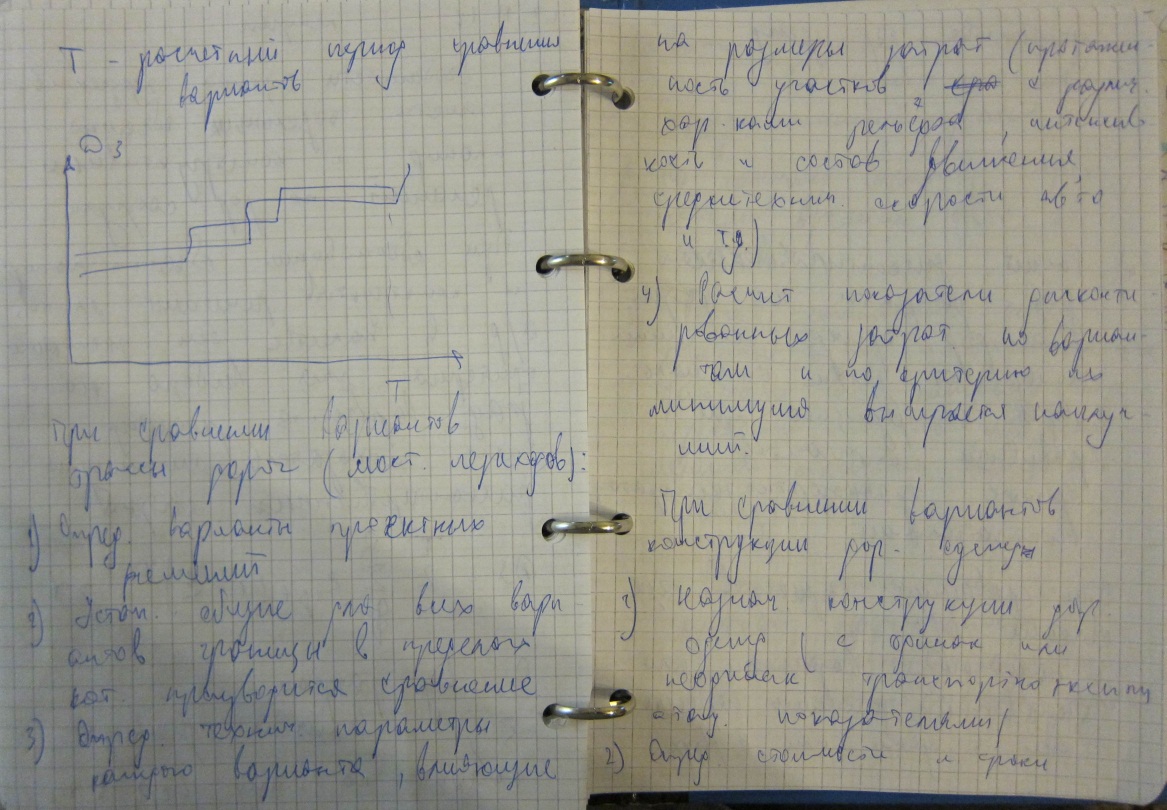 Т - расчетный период сравнения
вариантов
Дз
Т
При сравнении вариантов
трассы дорог (мост. переходов):
1) Опред. варианты проектных
решений
2) Устан. общие для всех вари-
антов границы в пределах
кот. производится сравнение
3) Опред. технич. параметры
каждого варианта, влияющие
на размеры затрат (протяжен-
ность участков с различ.
хар-ками рельефа, интенсив-
ность и состав движения,
среднетехнич. скорости авто
и т.д.)
4) Расчит показатели дисконти-
рованных затрат по вариан-
там и по критерию их
минимума выбирается наилуч-
ший.
При сравнении вариантов
конструкции дор. одежд
1) Назнач конструкции дор.
одежд (с одинак или
неодинак транспортно-эксплу
атац. показателями)
2) Опред стоимости и сроки